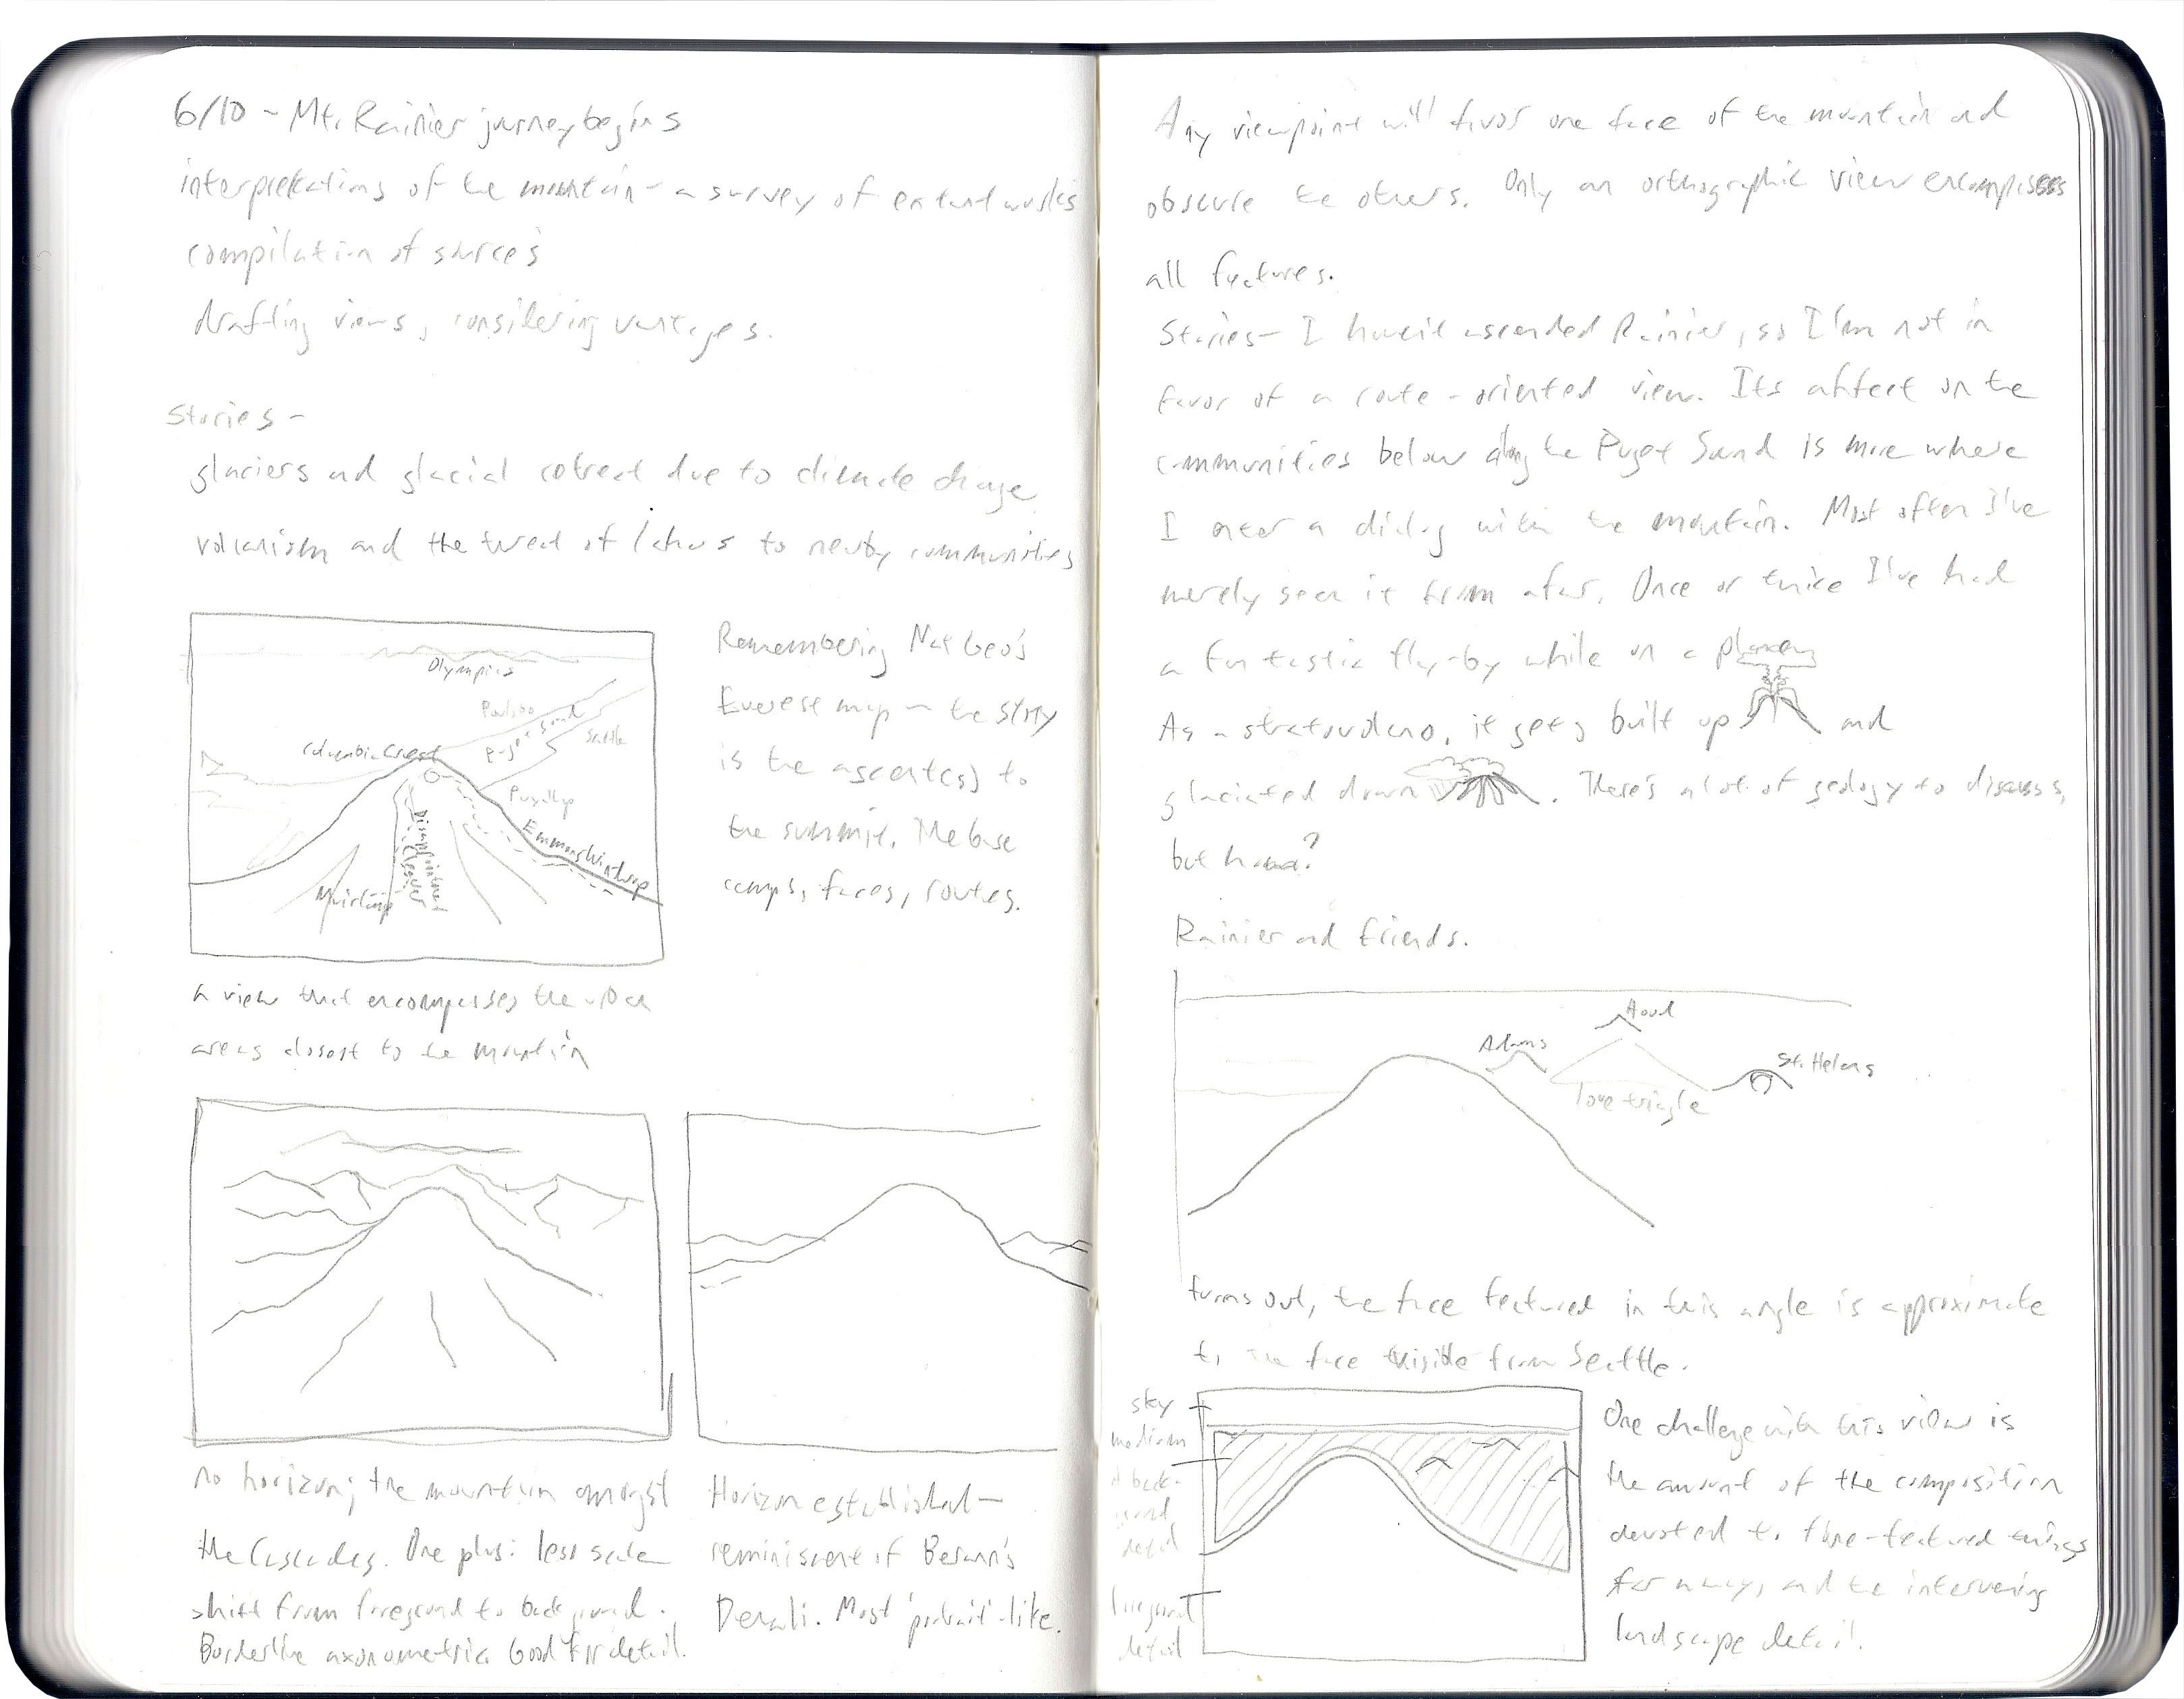 6/10 - Mt. Rainier journey begins
interpretations of the mountain - a survey of extant works
compilation of sources
drafting views, considering vantages.
Stories -
glaciers and glacial retreat due to climate change
volcanism and the threat of lahars to nearby communities
Olympics
Poulsbo
Puget Sound
Seattle
Columbia Crest
Puyallup
Emmons Winthrop
Disappointment Cleaver
Muir Camp
Remembering Nat Geo's
Everest map - the story
is the ascent(s) to
the summit. The base
camps, faces, routes.
A view that encompasses the urban
areas closest to the mountain
no horizon; the mountain amongst
the Cascades. One plus: less scale
shift from foreground to background.
Borderline axonometric. Good for detail.
Horizon established -
reminiscent of Berann's
Denali. Most 'portrait'-like.
Any viewpoint will favor one face of the mountain and
obscure the others. Only an orthographic view encompasses
all features.
Stories - I haven't ascended Rainier, so I'm not in
favor of a route-oriented view. Its affect on the
communities below along the Puget Sound is more where
I enter a dialog with the mountain. Most often I've
merely seen it from afar. Once or twice I've had
a fantastic fly-by while on a plane
As a stratovolcano, it gets built up and
glaciated down. There's a lot of geology to discuss,
but how?
Rainier and friends.
Hood
Adams
St. Helens
love triangle
turns out, the face featured in this angle is approximate
to the face visible from Seattle.
sky
medium
background
detail
foreground
detail
One challenge with this view is
the amount of the composition
devoted to fine-featured things
far away, and the intervening
landscape detail.